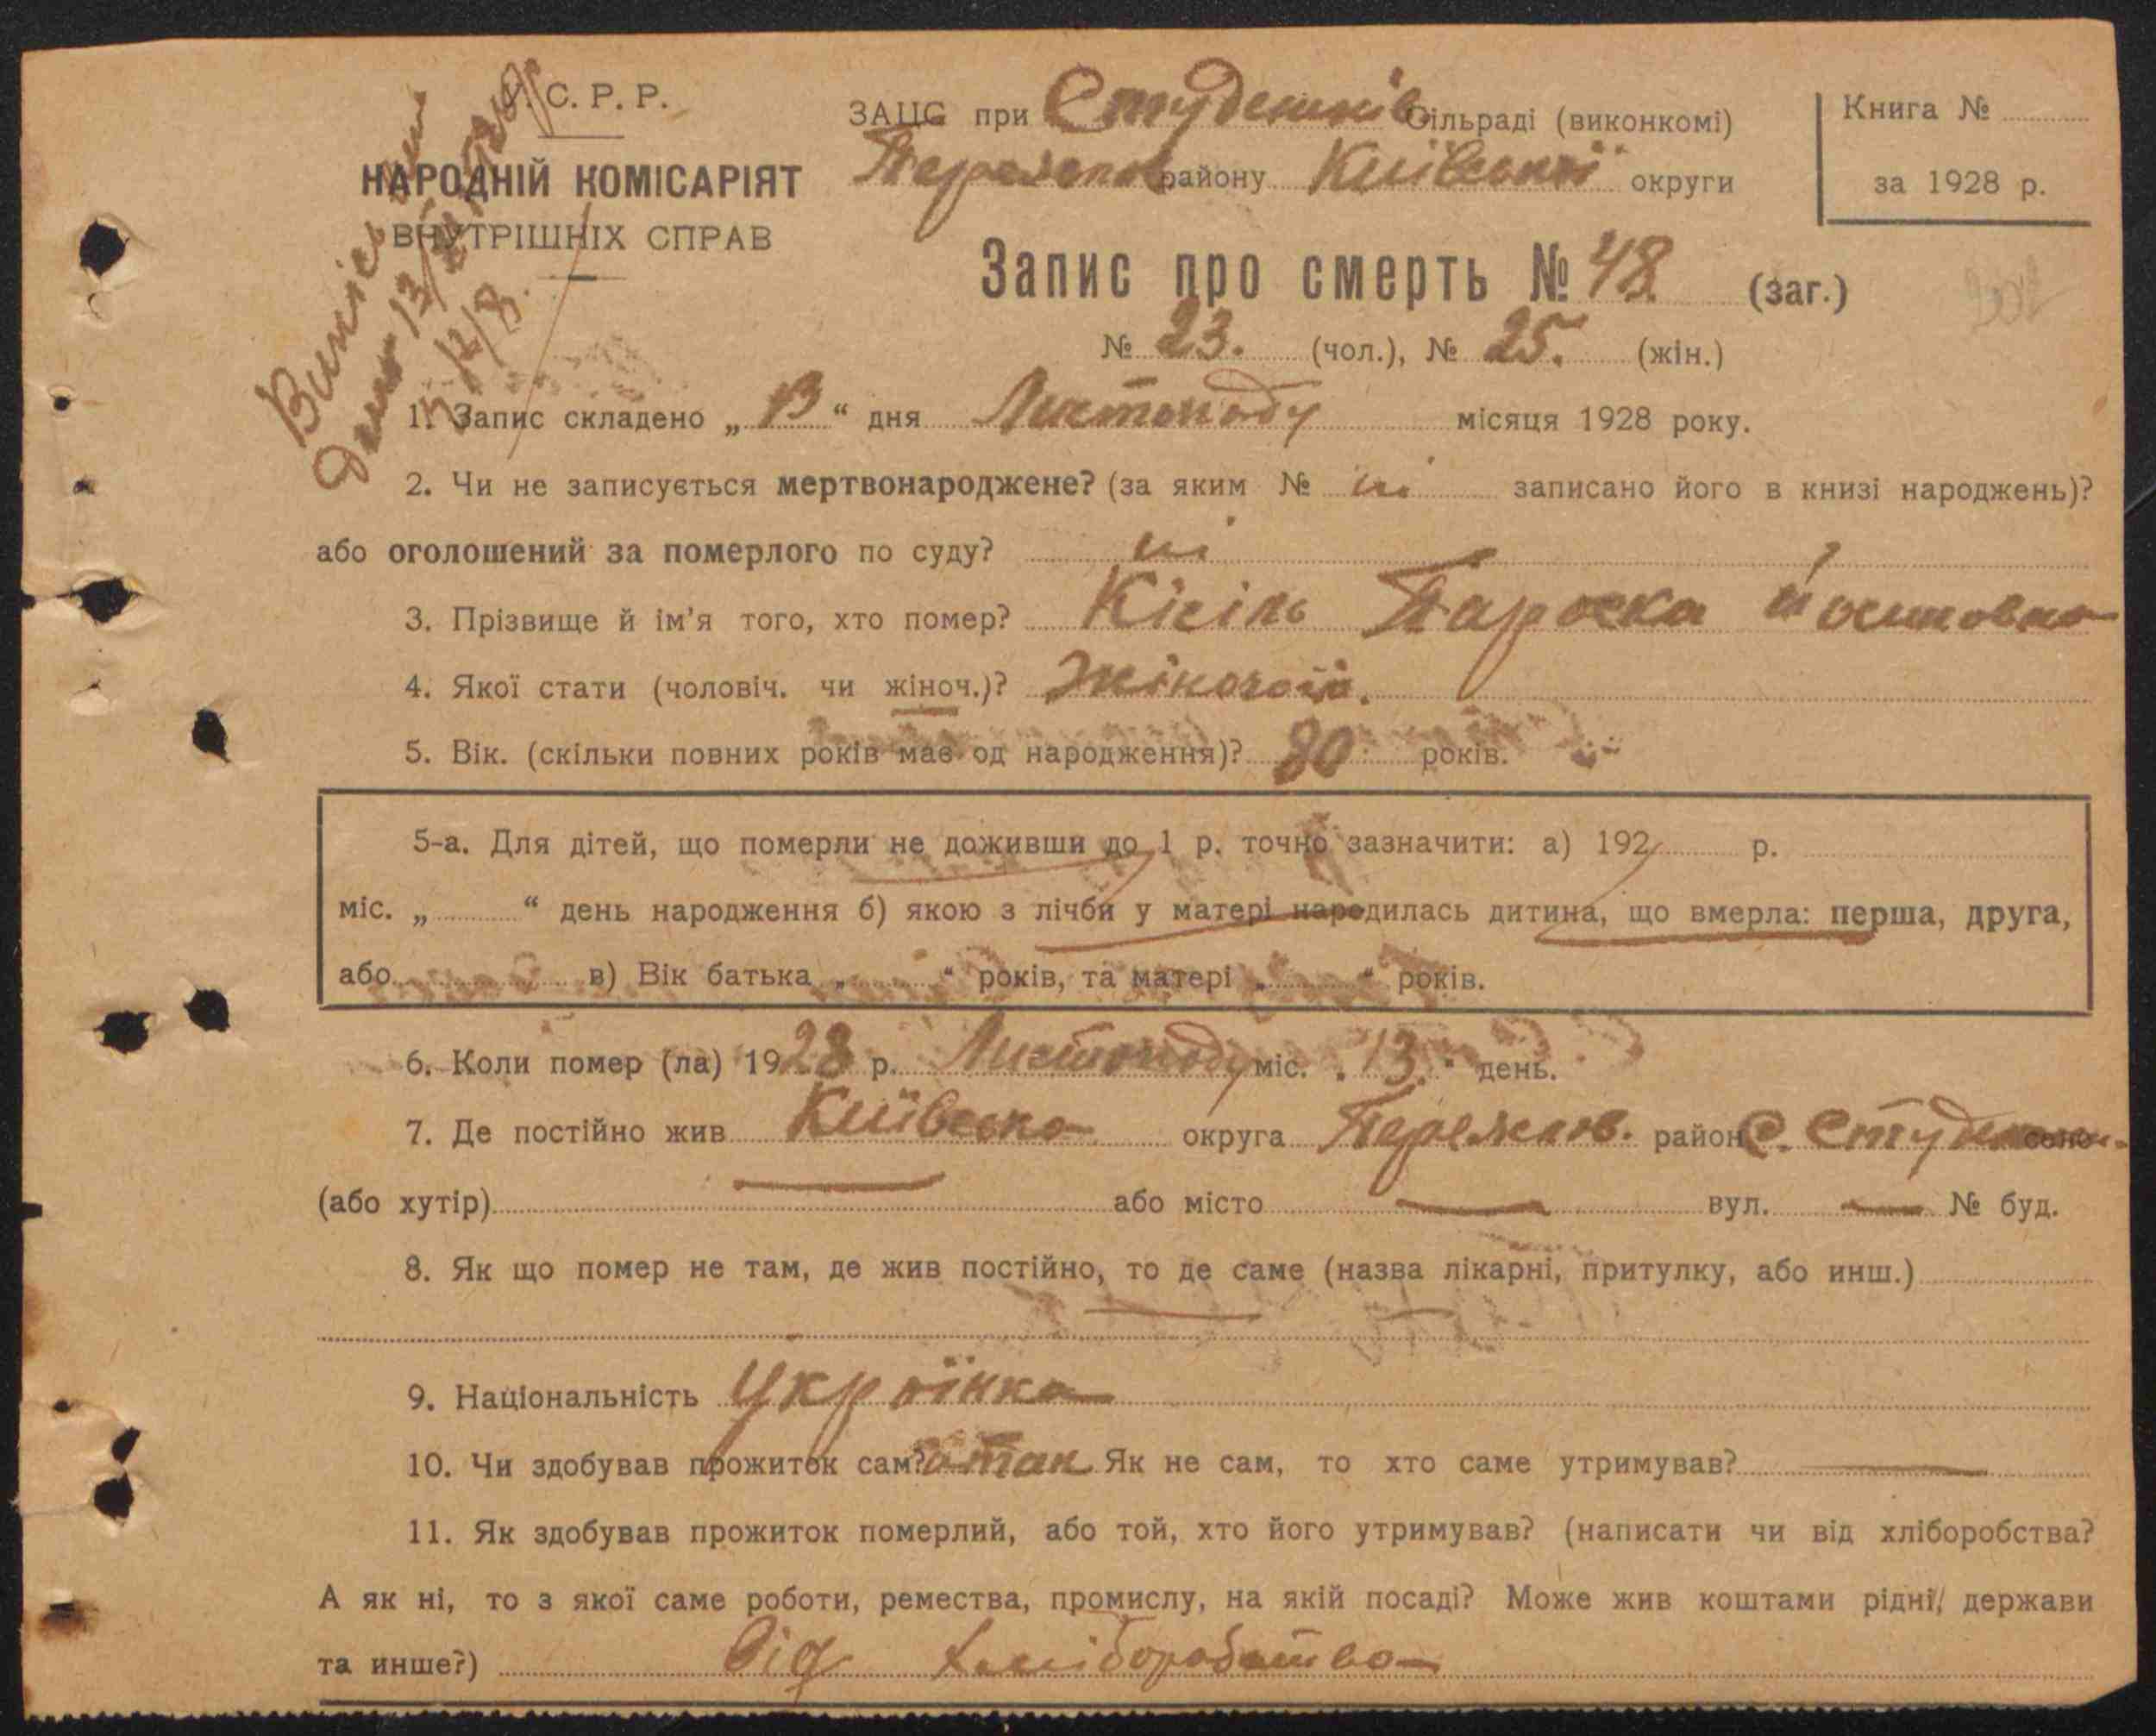 С. Р. Р.
НАРОДНІЙ КОМІСАРІЯТ
ВНУТРІШНІХ СПРАВ
ЗАЦС при Студенків Сільраді (виконкомі)
району Київської округи
Книга №
за 1928 р.
Запис про смерть № 48. (заг.)
№ 23. (чол.), № 25. (жін.)
1. Запис складено „ 13 “ дня Листопаду місяця 1928 року.
2. Чи не записується мертвонароджене? (за яким № ні записано його в книзі народжень)?
або оголошений за померлого по суду? ні
3. Прізвище й ім'я того, хто помер? Кісіль Параска
4. Якої стати (чоловіч. чи жіноч.)? Жіночоій.
5. Вік. (скільки повних років має од народження)? 80 років.
5-а. Для дітей, що померли не доживши до 1 р. точно зазначити: а) 192 р.
міс. „ “ день народження б) якою з лічби у матері народилась дитина, що вмерла: перша, друга,
або в) Вік батька „ “ років, та матері „ “ років.
6. Коли помер (ла) 1928 р. Листопаду міс. „ 13. “ день.
7. Де постійно жив Київська округа район с. село
(або хутір) — або місто — вул. — № буд.
8. Як що помер не там, де жив постійно, то де саме (назва лікарні, притулку, або инш.)
9. Національність Українка
10. Чи здобував прожиток сам? так Як не сам, то хто саме утримував? —
11. Як здобував прожиток померлий, або той, хто його утримував? (написати чи від хліборобства?
А як ні, то з якої саме роботи, ремества, промислу, на якій посаді? Може жив коштами рідні, держави
та инше?) від хліборобства